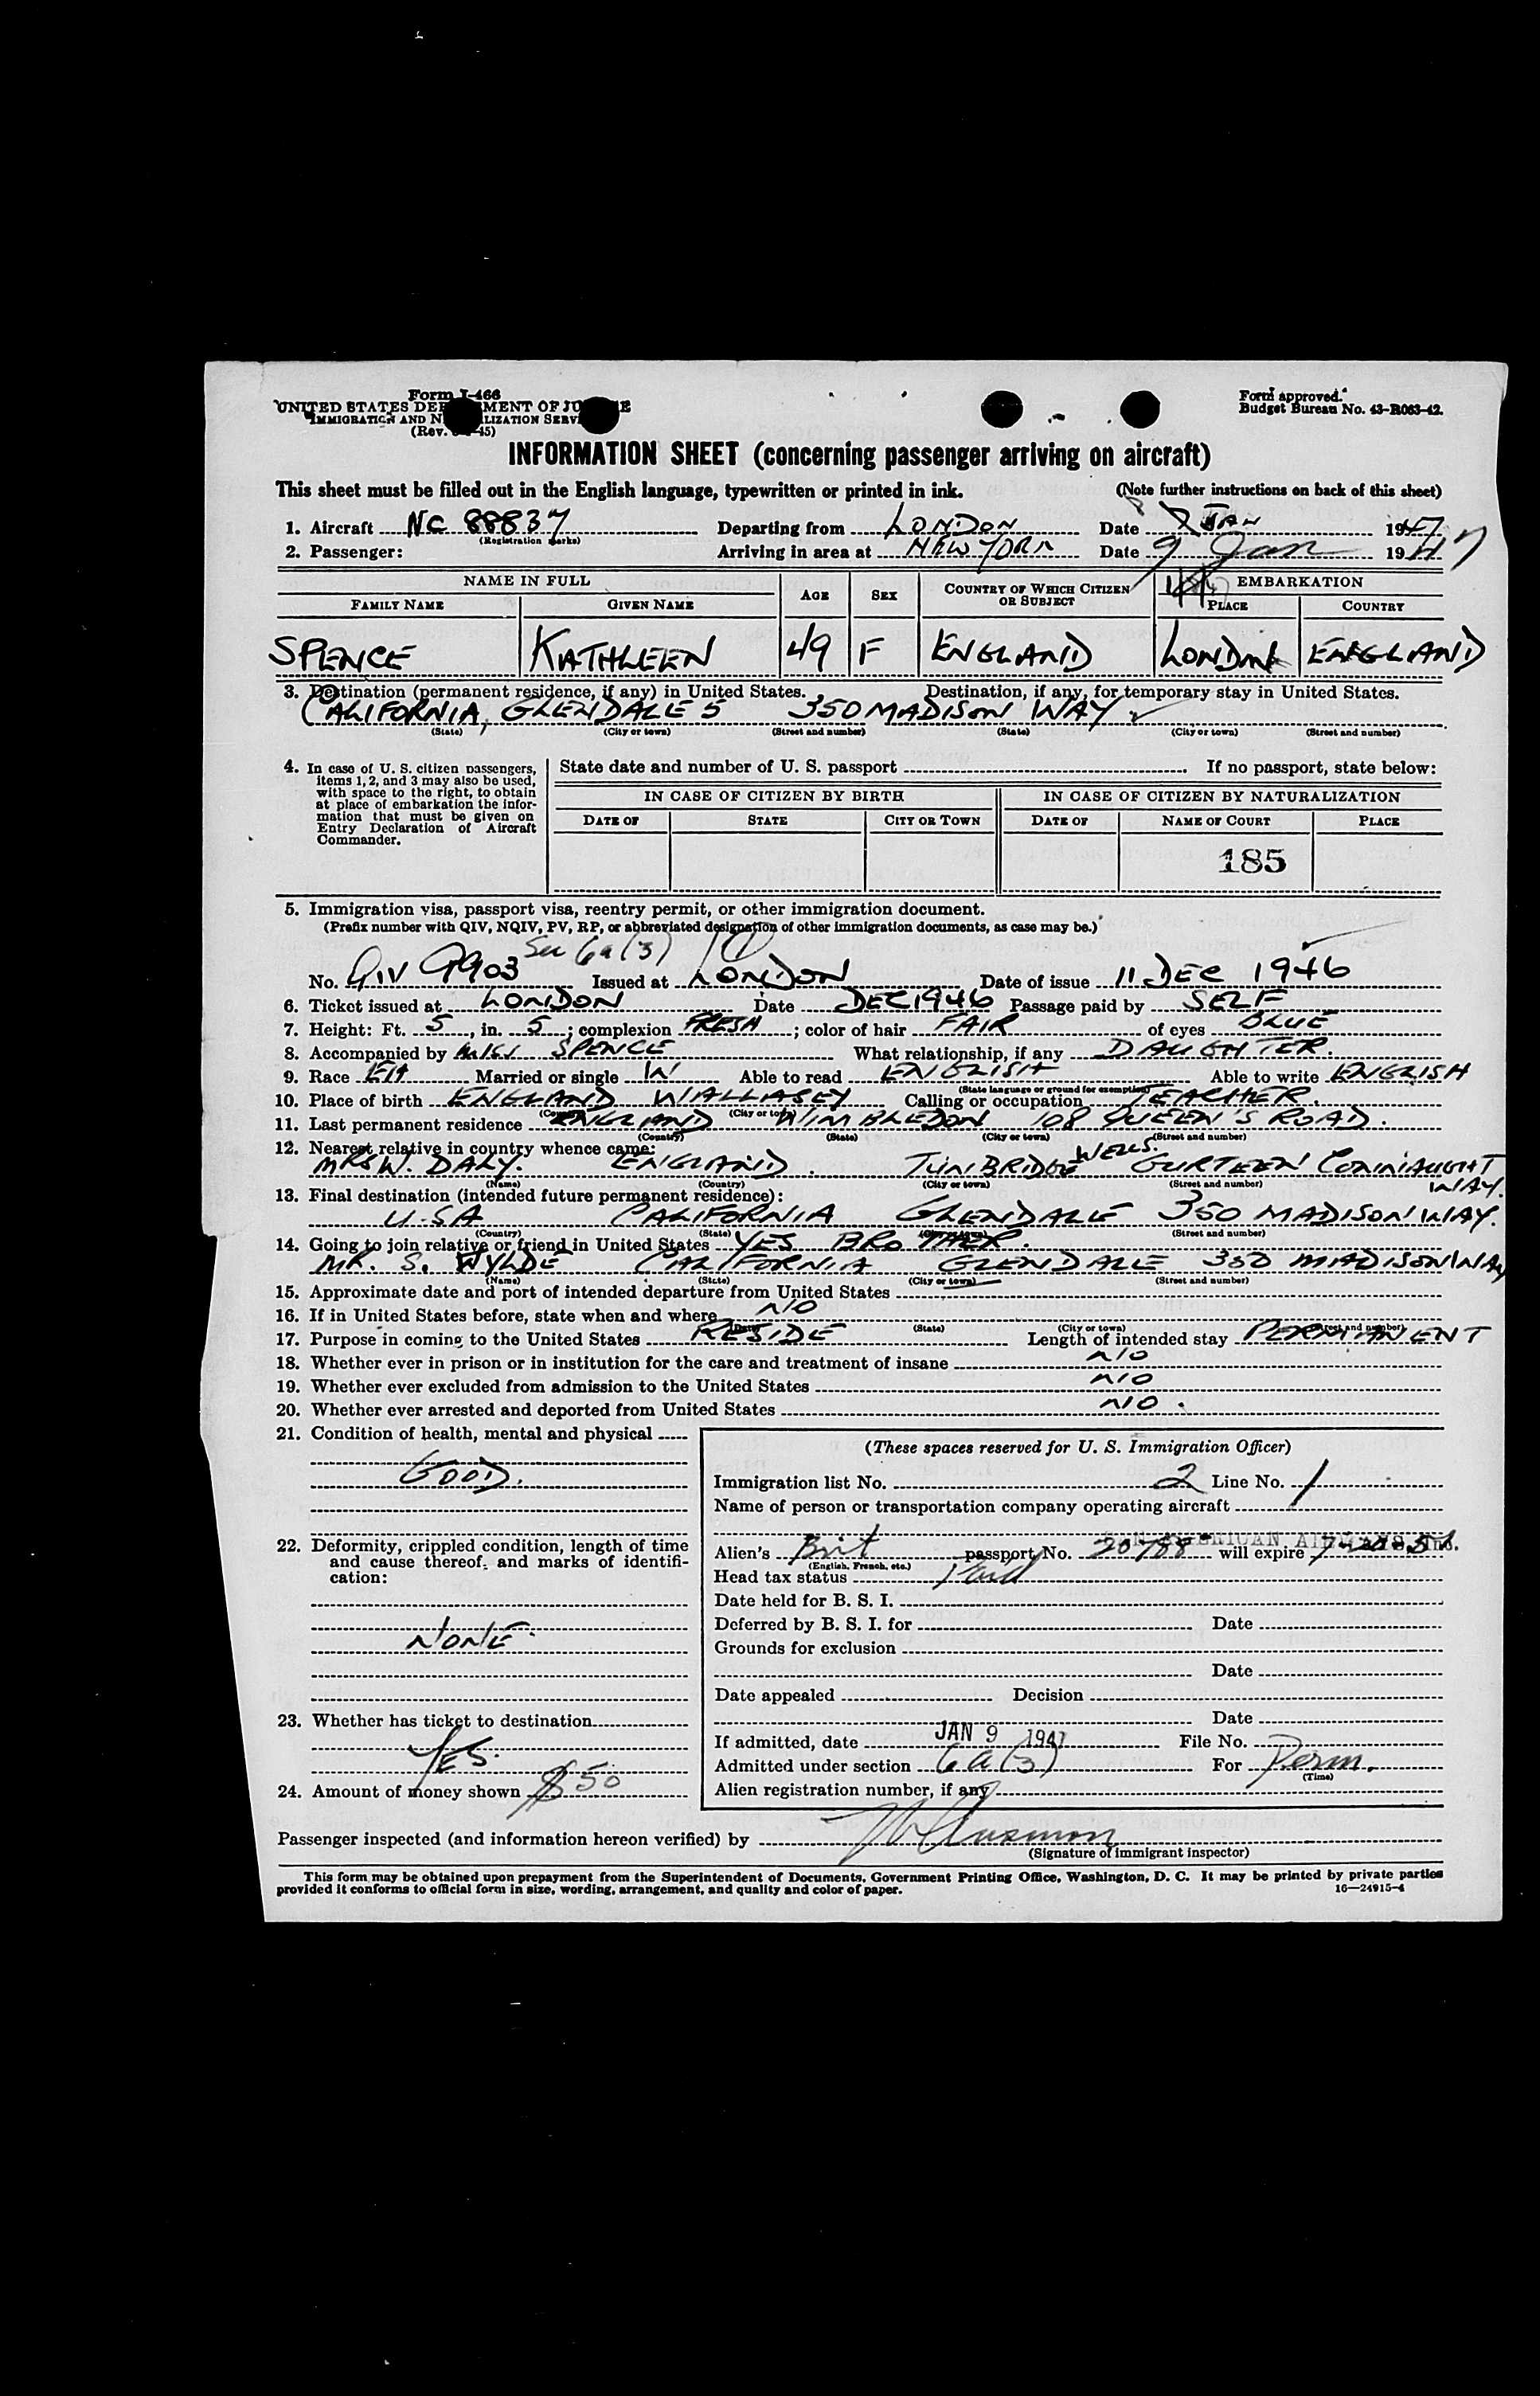 Form I-466
UNITED STATES DEPARTMENT OF JUSTICE
IMMIGRATION AND NATURALIZATION SERVICE
(Rev. 45)
Form approved.
Budget Bureau No. 43-R063-42.
INFORMATION SHEET (concerning passenger arriving on aircraft)
This sheet must be filled out in the English language, typewritten or printed in ink. (Note further instructions on back of this sheet)
1. Aircraft NC 88837 Departing from LONDON Date 8 JAN 1947
(Registration marks)
2. Passenger: Arriving in area at NEW YORK Date 9 Jan 1947
NAME IN FULL AGE SEX COUNTRY OF WHICH CITIZEN OR SUBJECT EMBARKATION
FAMILY NAME GIVEN NAME PLACE COUNTRY
SPENCE KATHLEEN 49 F ENGLAND LONDON ENGLAND
3. Destination (permanent residence, if any) in United States. Destination, if any, for temporary stay in United States.
CALIFORNIA, GLENDALE 5 350 MADISON WAY
(State) (City or town) (Street and number) (State) (City or town) (Street and number)
4. In case of U. S. citizen passengers, items 1, 2, and 3 may also be used, with space to the right, to obtain at place of embarkation the information that must be given on Entry Declaration of Aircraft Commander.
State date and number of U. S. passport If no passport, state below:
IN CASE OF CITIZEN BY BIRTH IN CASE OF CITIZEN BY NATURALIZATION
DATE OF STATE CITY OR TOWN DATE OF NAME OF COURT PLACE
185
5. Immigration visa, passport visa, reentry permit, or other immigration document.
(Prefix number with QIV, NQIV, PV, RP, or abbreviated designation of other immigration documents, as case may be.)
Sec 6a(3)
No. QIV 9903 Issued at LONDON Date of issue 11 DEC 1946
6. Ticket issued at LONDON Date DEC 1946 Passage paid by SELF
7. Height: Ft. 5, in. 5; complexion FRESH; color of hair FAIR of eyes BLUE
8. Accompanied by MISS SPENCE What relationship, if any DAUGHTER.
9. Race EN Married or single W Able to read ENGLISH Able to write ENGLISH
(State language or ground for exemption)
10. Place of birth ENGLAND WALLASEY Calling or occupation TEACHER.
(Country) (City or town)
11. Last permanent residence ENGLAND WIMBLEDON 108 QUEEN'S ROAD.
(Country) (State) (City or town) (Street and number)
12. Nearest relative in country whence came:
MRS W. DALY. ENGLAND. TUNBRIDGE WELLS. GURTEEN CONNAUGHT WAY.
(Name) (Country) (City or town) (Street and number)
13. Final destination (intended future permanent residence):
U.S.A CALIFORNIA GLENDALE 350 MADISON WAY.
(Country) (State) (City or town) (Street and number)
14. Going to join relative or friend in United States YES BROTHER.
MR. S. WYLDE CALIFORNIA GLENDALE 350 MADISON WAY
(Name) (State) (City or town) (Street and number)
15. Approximate date and port of intended departure from United States
16. If in United States before, state when and where NO
(Date) (State) (City or town) (Street and number)
17. Purpose in coming to the United States RESIDE Length of intended stay PERMANENT
18. Whether ever in prison or in institution for the care and treatment of insane NO
19. Whether ever excluded from admission to the United States NO
20. Whether ever arrested and deported from United States NO.
21. Condition of health, mental and physical
GOOD.
22. Deformity, crippled condition, length of time and cause thereof, and marks of identification:
NONE.
23. Whether has ticket to destination
YES.
24. Amount of money shown $50
(These spaces reserved for U. S. Immigration Officer)
Immigration list No. 2 Line No. 1
Name of person or transportation company operating aircraft
AMERICAN AIRWAYS, Inc.
Alien's Brit passport No. 20788 will expire
(English, French, etc.)
Head tax status Paid
Date held for B. S. I.
Deferred by B. S. I. for Date
Grounds for exclusion
Date
Date appealed Decision
Date
If admitted, date JAN 9 1947 File No.
Admitted under section 6a(3) For Perm.
(Time)
Alien registration number, if any
Passenger inspected (and information hereon verified) by
(Signature of immigrant inspector)
This form may be obtained upon prepayment from the Superintendent of Documents, Government Printing Office, Washington, D. C. It may be printed by private parties
provided it conforms to official form in size, wording, arrangement, and quality and color of paper. 16—24915-4